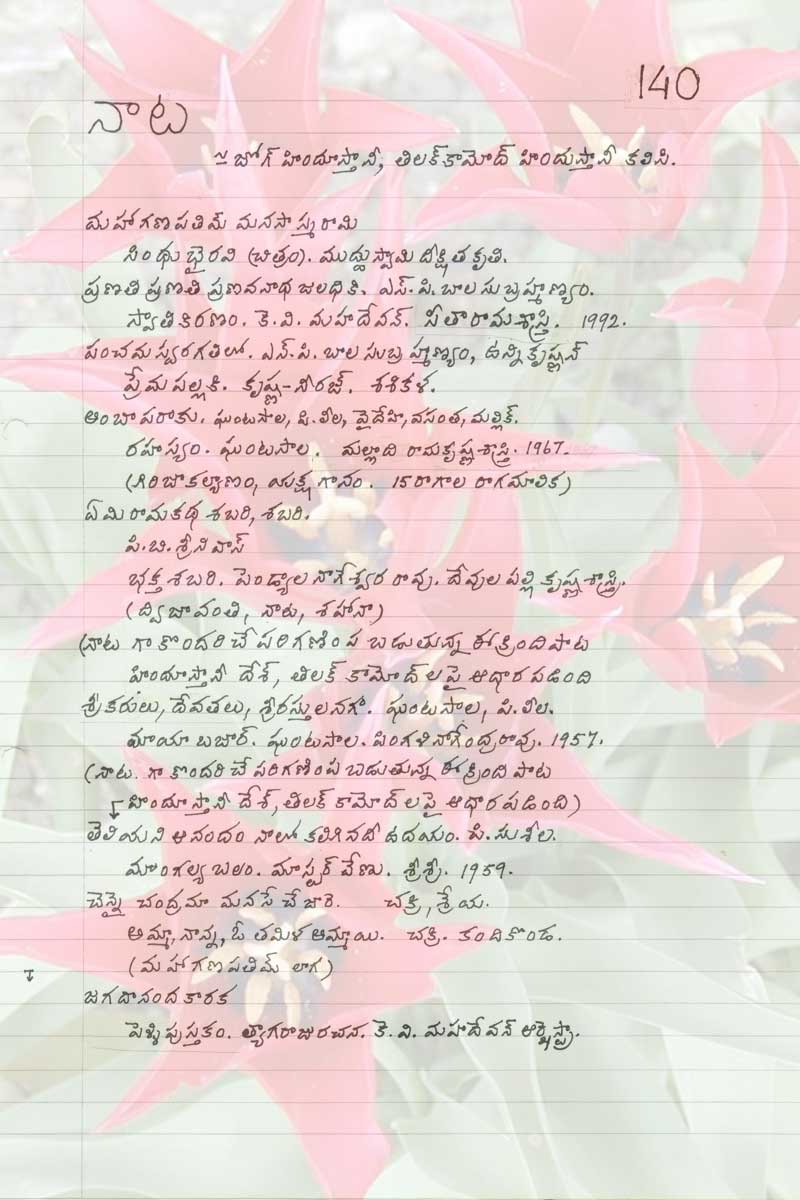 140
నాట
~ జోగ్ హిందూస్తానీ, తిలక్‌కామోద్ హిందుస్తానీ కలిసి.
మహాగణపతిమ్ మనసా స్మరామి
సింధుభైరవి (చిత్రం). ముద్దుస్వామి దీక్షిత కృతి.
ప్రణతి ప్రణతి ప్రణవనాథ జలధికి. ఎస్.పి.బాలసుబ్రహ్మణ్యం.
స్వాతికిరణం. కె.వి. మహాదేవన్. సీతారామశాస్త్రి. 1992.
పంచమస్వరగతిలో. ఎస్.పి. బాలసుబ్రహ్మణ్యం, ఉన్నికృష్ణన్
ప్రేమపల్లకి. కృష్ణ-నీరజ్. శశికళ.
అంబా పరాకు. ఘంటసాల, పి.లీల, వైదేహి, వసంత, మల్లిక్.
రహస్యం. ఘంటసాల. మల్లాది రామకృష్ణశాస్త్రి. 1967.
(గిరిజాకల్యాణం, యక్షగానం. 15రాగాల రాగమాలిక)
ఏమి రామకథ శబరి, శబరి.
పి.బి.శ్రీనివాస్
భక్త శబరి. పెండ్యాల నాగేశ్వరరావు. దేవులపల్లి కృష్ణశాస్త్రి.
(ద్విజావంతి, నాట, శహానా)
(నాట గా కొందరిచే పరిగణింపబడుతున్న ఈ క్రింది పాట
హిందూస్తానీ దేశ్, తిలక్ కామోద్‌లపై ఆధారపడింది
శ్రీకరులు, దేవతలు, శ్రీరస్తులనగా. ఘంటసాల, పి.లీల.
మాయాబజార్. ఘంటసాల. పింగళి నాగేంద్రరావు. 1957.
(నాట. గా కొందరిచే పరిగణింపబడుతున్న ఈ క్రింది పాట
హిందూస్తానీ దేశ్, తిలక్ కామోద్‌లపై ఆధారపడింది)
తెలియని ఆనందం నాలో కలిగినదీ ఉదయం. పి.సుశీల.
మాంగల్యబలం. మాస్టర్ వేణు. శ్రీశ్రీ. 1959.
చెన్నై చంద్రమా మనసే చేజారె. చక్రి, శ్రేయ.
అమ్మా, నాన్న, ఓ తమిళ అమ్మాయి. చక్రి. కందికొండ.
(మహాగణపతిమ్ లాగ)
జగదానందకారక
పెళ్ళిపుస్తకం. త్యాగరాజురచన. కె.వి. మహాదేవన్ ఆర్కెస్ట్రా.